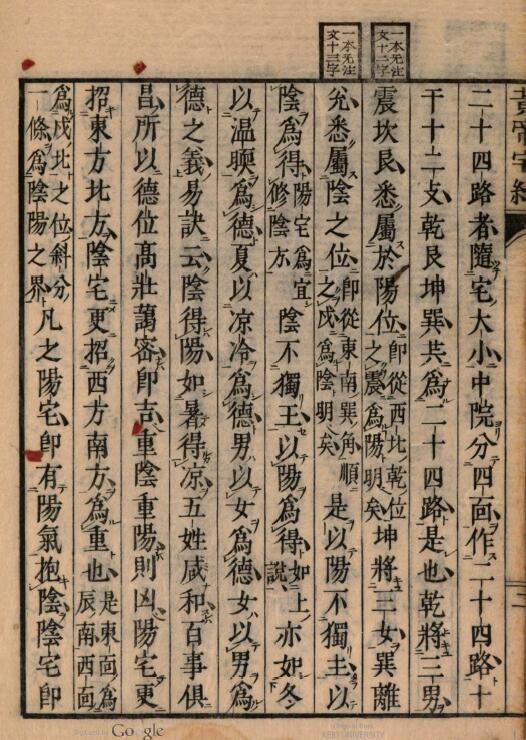 黃帝宅經
一本无注
文十二字
一本无注
文十三字
二十四路者隨宅大小中院分四面作二十四路十
干十二攴乾艮坤巽共爲二十四路是也乾將三男
震坎艮悉屬於陽位即從西北乾位之震爲陽明矣坤將三女巽離
兊悉屬陰之位即從東南巽角順之戌爲陰明矣是以陽不獨主以
陰爲得陽宅爲宜修陰方陰不獨王以陽爲得如上說亦如冬
以温㬉爲德夏以凉冷爲德男以女爲德女以男爲
德之義易訣云陰得陽如暑得凉五姓咸和百事俱
昌所以德位高壯藹密即吉重陰重陽則凶陽宅更
招東方北方陰宅更招西方南方爲重也是東面爲辰南西面
爲戌北之位斜分一條爲陰陽之界凡之陽宅即有陽氣抱陰陰宅即
Digitized by Google
Original from
KEIO UNIVERSITY